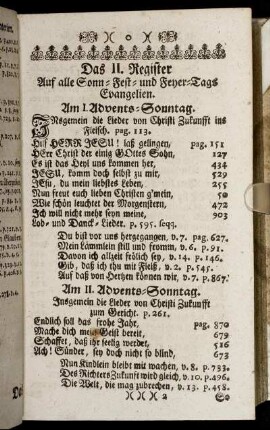 Das II. Register
Auf alle Sonn- Fest- und Feyer-Tags
Evangelien.
Am I. Advents-Sonntag.
Insgemein die Lieder von Christi Zukunfft ins
Fleisch. pag. 113.
Hilf HERR JESU! laß gelingen, pag. 151
HErr Christ der einig GOttes Sohn, 127
Es ist das Heyl uns kommen her, 434
JESU, komm doch selbst zu mir, 529
JEsu, du mein liebstes Leben, 255
Nun freut euch lieben Christen g'mein, 50
Wie schön leuchtet der Morgenstern, 472
Ich will nicht mehr seyn meine, 903
Lob- und Danck-Lieder. p. 595. seqq.
Du bist vor uns hergegangen, v. 7. pag. 627.
Mein Lämmlein still und fromm, v. 6. p. 91.
Davon ich allzeit frölich sey, v. 14. p. 146.
Gib, daß ich thu mit Fleiß, v. 2. p. 545.
Auf daß von Hertzen können wir, v. 7. p. 867.
Am II. Advents-Sonntag.
Insgemein die Lieder von Christi Zukunfft
zum Gericht. p. 261.
Endlich soll das frohe Jahr, pag. 870
Mache dich mein Geist bereit, 679
Schaffet, daß ihr seelig werdet, 516
Ach! Sünder, sey doch nicht so blind, 673
Nun Kindlein bleibt mir wachen, v. 8. p. 733.
Des Richters Zukunfft wird gleich, v. 10. p. 496.
Die Welt, die mag zubrechen, v. 13. p. 458.
2 So